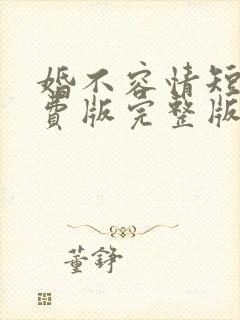 婚不容情短
费版完整版
董铮